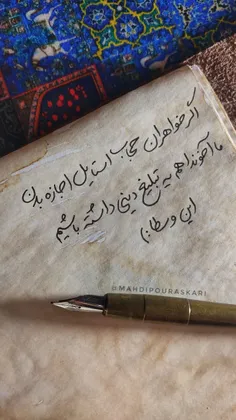 اگر خواهران حجاب استایل اجازه بدن
ما آخوندا هم یه تبلیغ دینی داشته باشیم
این وسطا:)
@MAHDIPOURASKARI